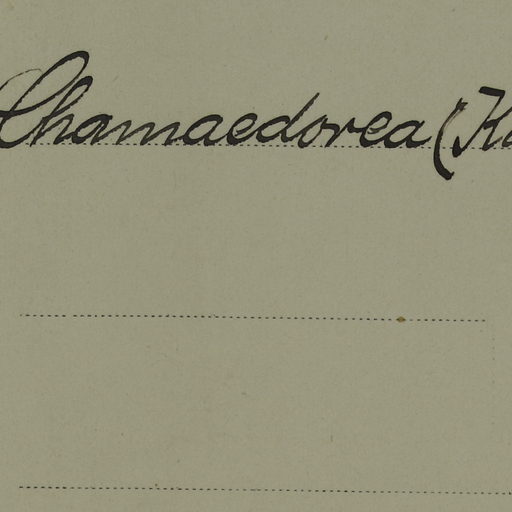 Chamaedorea (